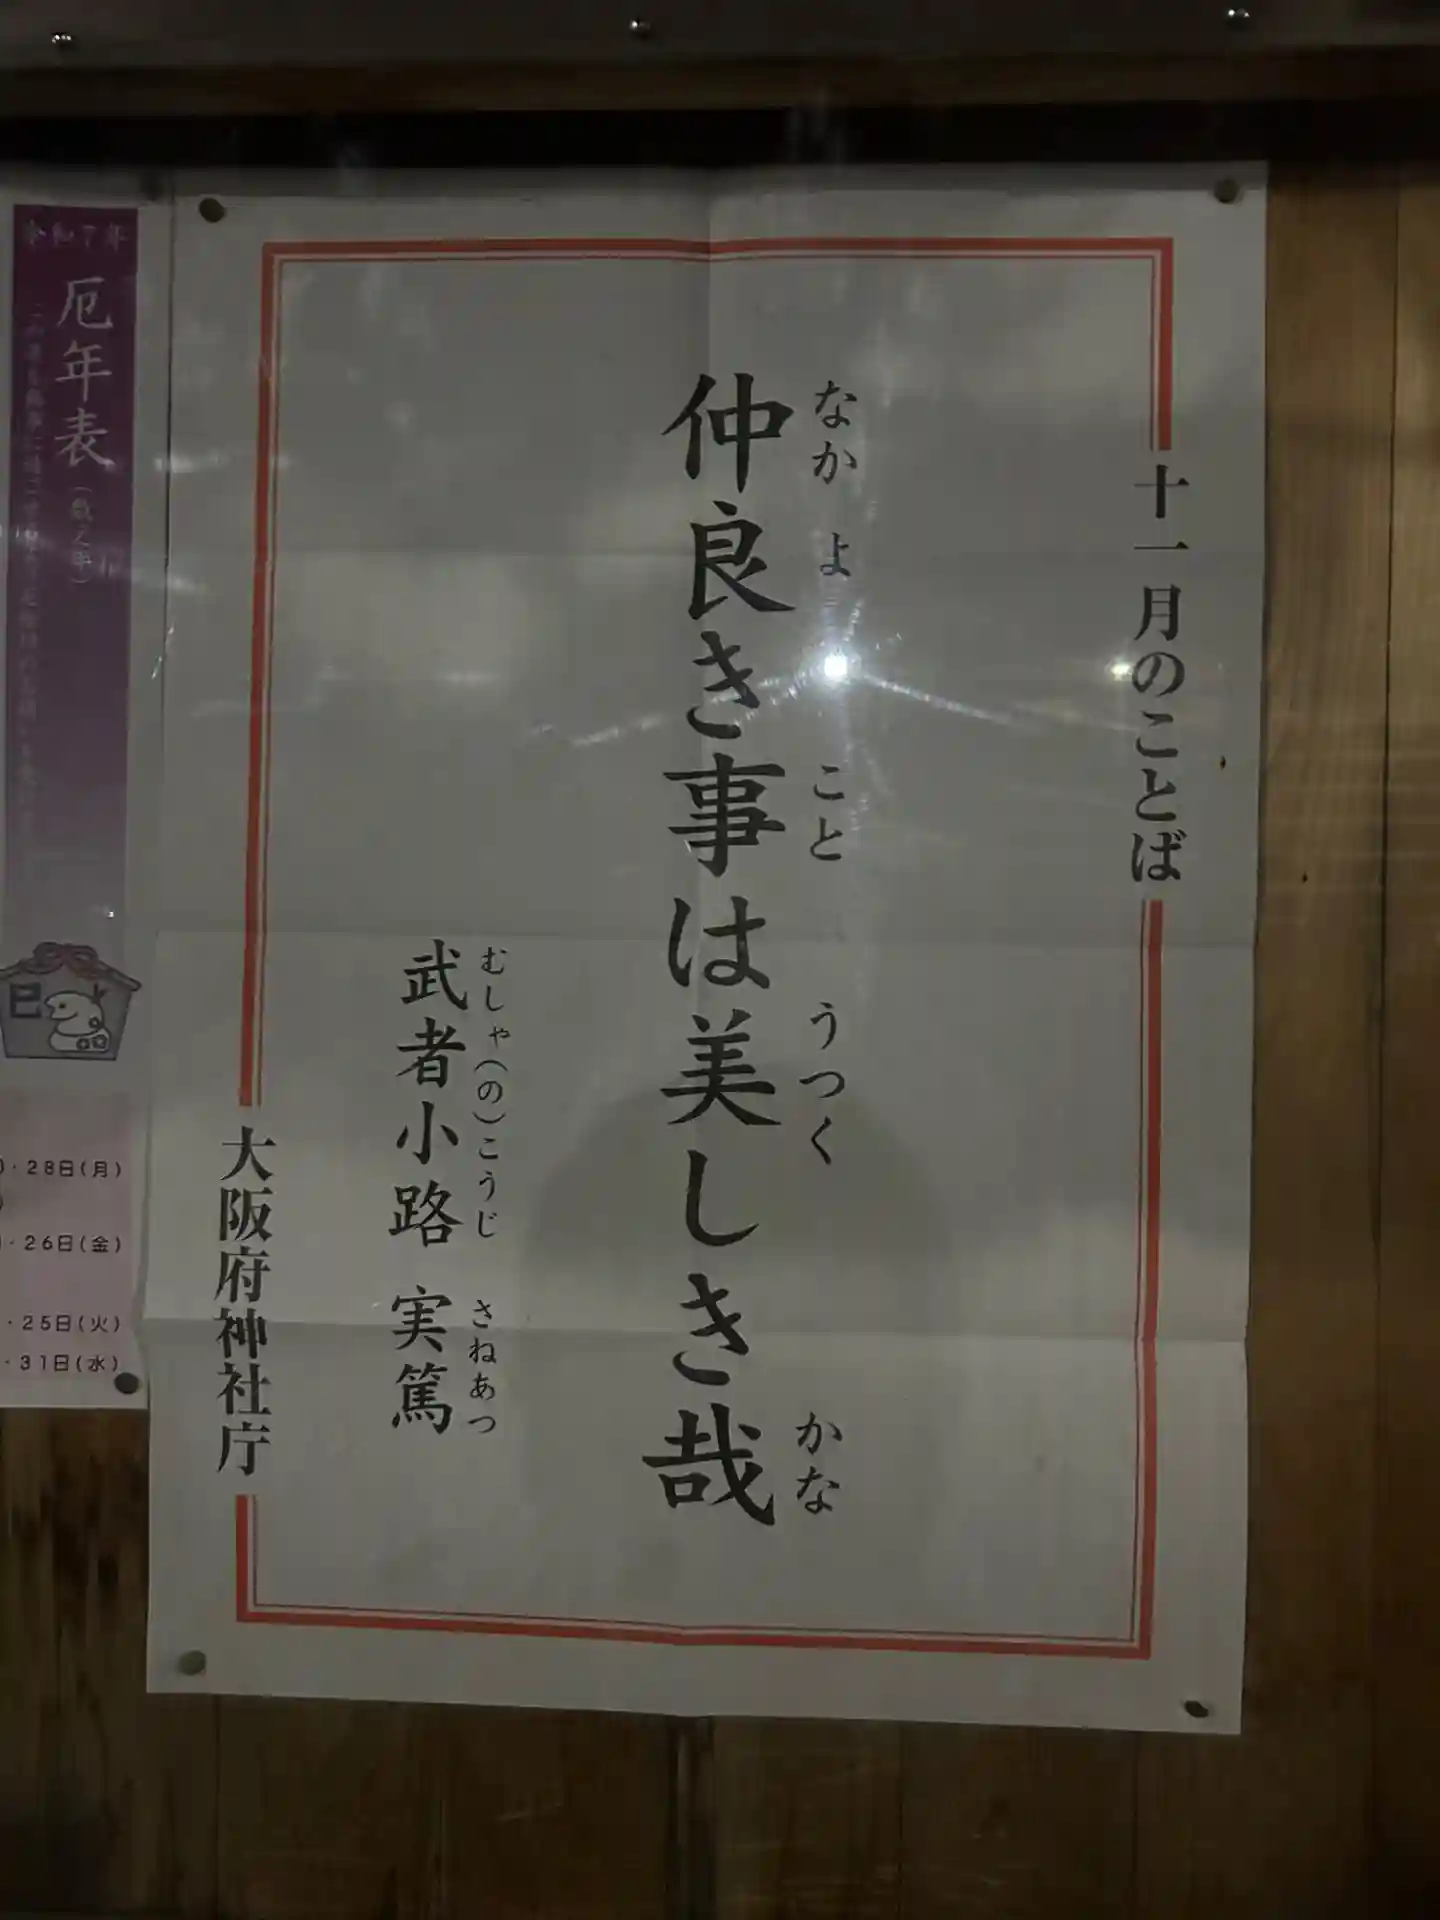 十一月のことば
仲良き事は美しき哉
なか よ こと うつく かな
武者小路 実篤
むしゃ(の)こうじ さねあつ
大阪府神社庁
令和7年
厄年表(数え年)
巳
・28日(月)
・26日(金)
・25日(火)
・31日(水)